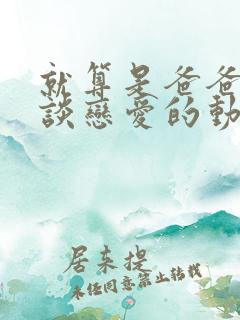 就算是爸爸
談戀愛的動
居来提
未经同意禁止转载